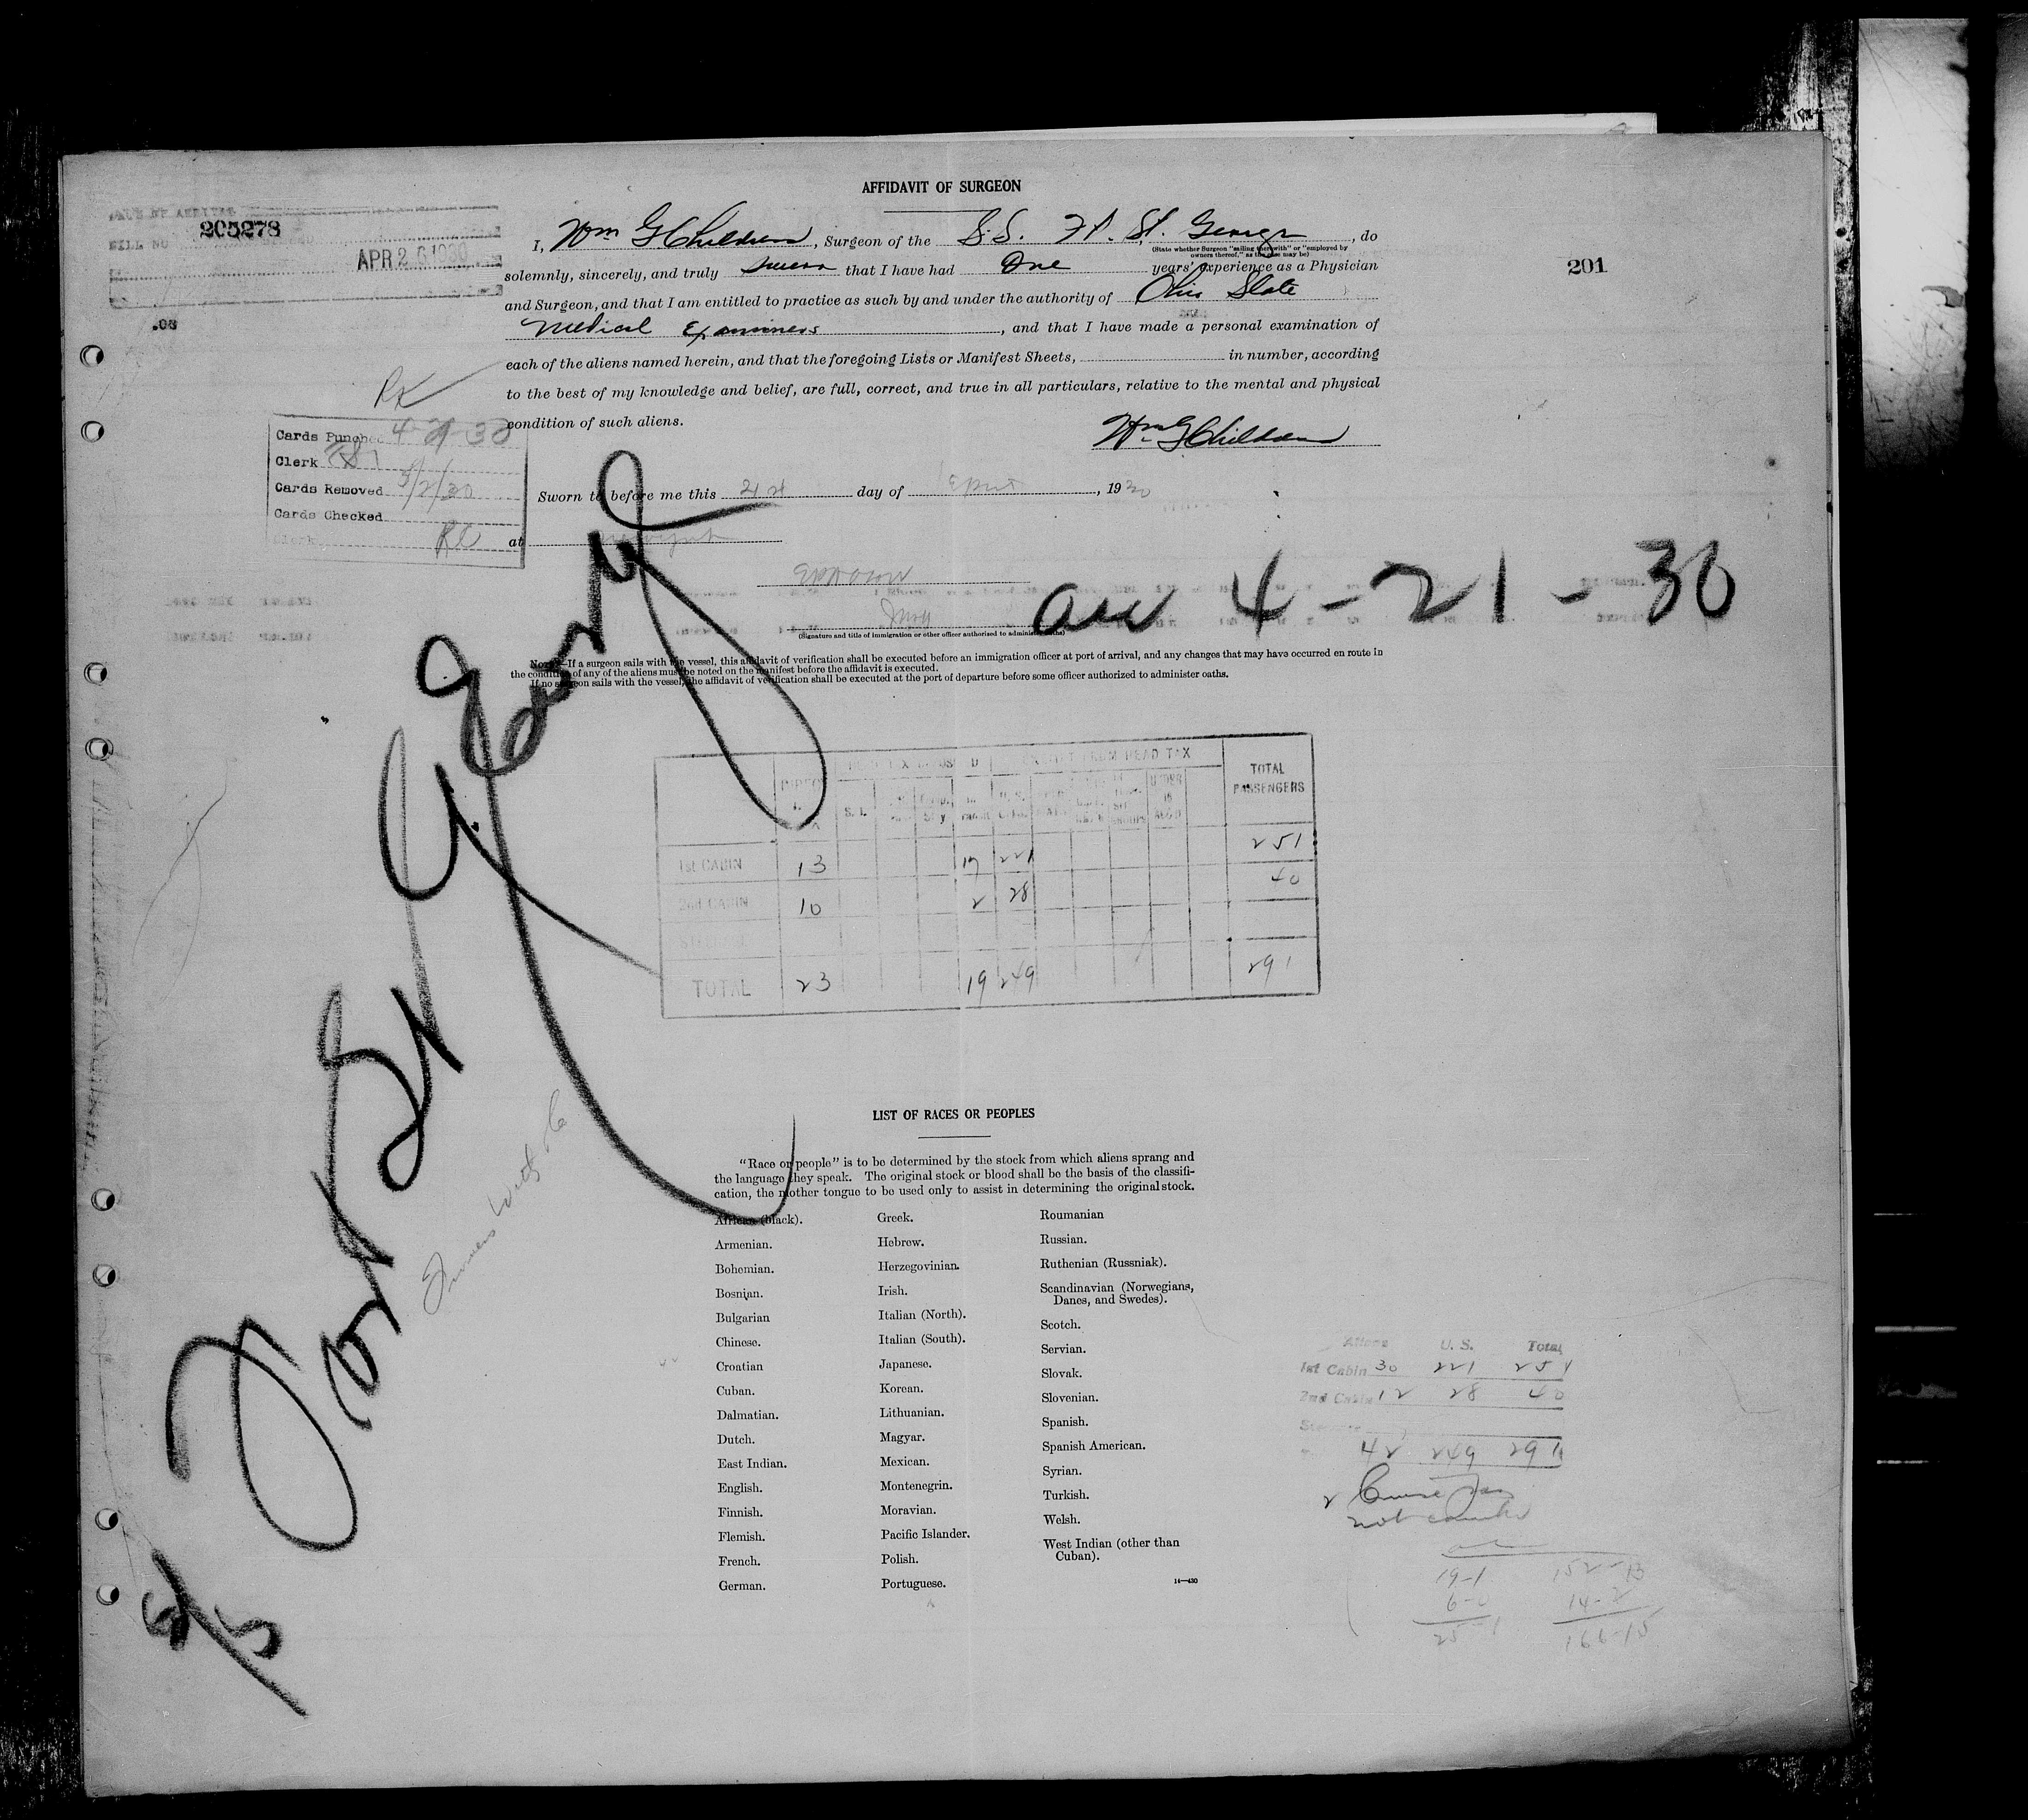 AFFIDAVIT OF SURGEON
205278
BILL NO
APR 26 1930
201
.03
I, Wm G Childress, Surgeon of the S.S. Ft. St. George, do
(State whether Surgeon "sailing therewith" or "employed by
owners thereof," as the case may be)
solemnly, sincerely, and truly swear that I have had One years' experience as a Physician
and Surgeon, and that I am entitled to practice as such by and under the authority of Ohio State
Medical Examiners, and that I have made a personal examination of
each of the aliens named herein, and that the foregoing Lists or Manifest Sheets, in number, according
to the best of my knowledge and belief, are full, correct, and true in all particulars, relative to the mental and physical
condition of such aliens.
Wm G Childress
Cards Punched 4-29-30
Clerk
Cards Removed 5/2/30
Cards Checked
Clerk
Sworn to before me this 21st day of April, 1930
at
(Signature and title of immigration or other officer authorized to administer oaths)
arr 4-21-30
NOTE.—If a surgeon sails with the vessel, this affidavit of verification shall be executed before an immigration officer at port of arrival, and any changes that may have occurred en route in
the condition of any of the aliens must be noted on the manifest before the affidavit is executed.
If no surgeon sails with the vessel, the affidavit of verification shall be executed at the port of departure before some officer authorized to administer oaths.
Fort St George
HEAD TAX
TOTAL
PASSENGERS
S. I.
1st CABIN 13 17 221 251
2nd CABIN 10 2 28 40
STEERAGE
TOTAL 23 19 249 291
LIST OF RACES OR PEOPLES
"Race or people" is to be determined by the stock from which aliens sprang and
the language they speak. The original stock or blood shall be the basis of the classifi-
cation, the mother tongue to be used only to assist in determining the original stock.
African (black).
Armenian.
Bohemian.
Bosnian.
Bulgarian
Chinese.
Croatian
Cuban.
Dalmatian.
Dutch.
East Indian.
English.
Finnish.
Flemish.
French.
German.
Greek.
Hebrew.
Herzegovinian.
Irish.
Italian (North).
Italian (South).
Japanese.
Korean.
Lithuanian.
Magyar.
Mexican.
Montenegrin.
Moravian.
Pacific Islander.
Polish.
Portuguese.
Roumanian
Russian.
Ruthenian (Russniak).
Scandinavian (Norwegians,
Danes, and Swedes).
Scotch.
Servian.
Slovak.
Slovenian.
Spanish.
Spanish American.
Syrian.
Turkish.
Welsh.
West Indian (other than
Cuban).
14—430
Aliens U. S. Total
1st Cabin 30 221 251
2nd Cabin 12 28 40
42 249 291
not
19-1 152-13
6-0 14-2
25-1 166-15